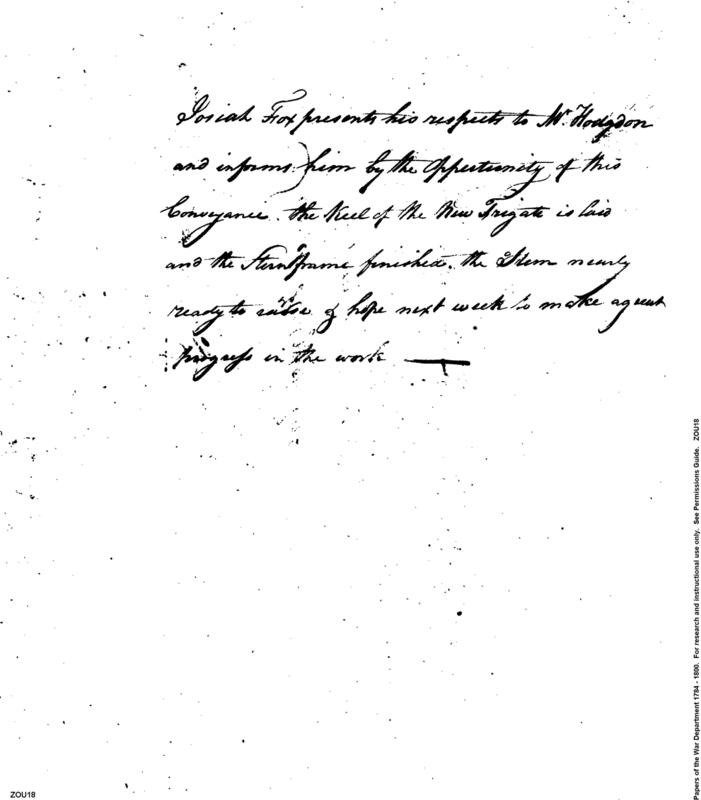 Josiah Fox presents his respects to Mr. Hodgdon
and informs him by the Oppertunity of this
Conveyance. the Keel of the New Frigate is laid
and the Stern frame finished. the Stem nearly
ready to raise & hope next week to make a great
progress in the work
Papers of the War Department 1784 - 1800. For research and instructional use only. See Permissions Guide. ZOU18
ZOU18